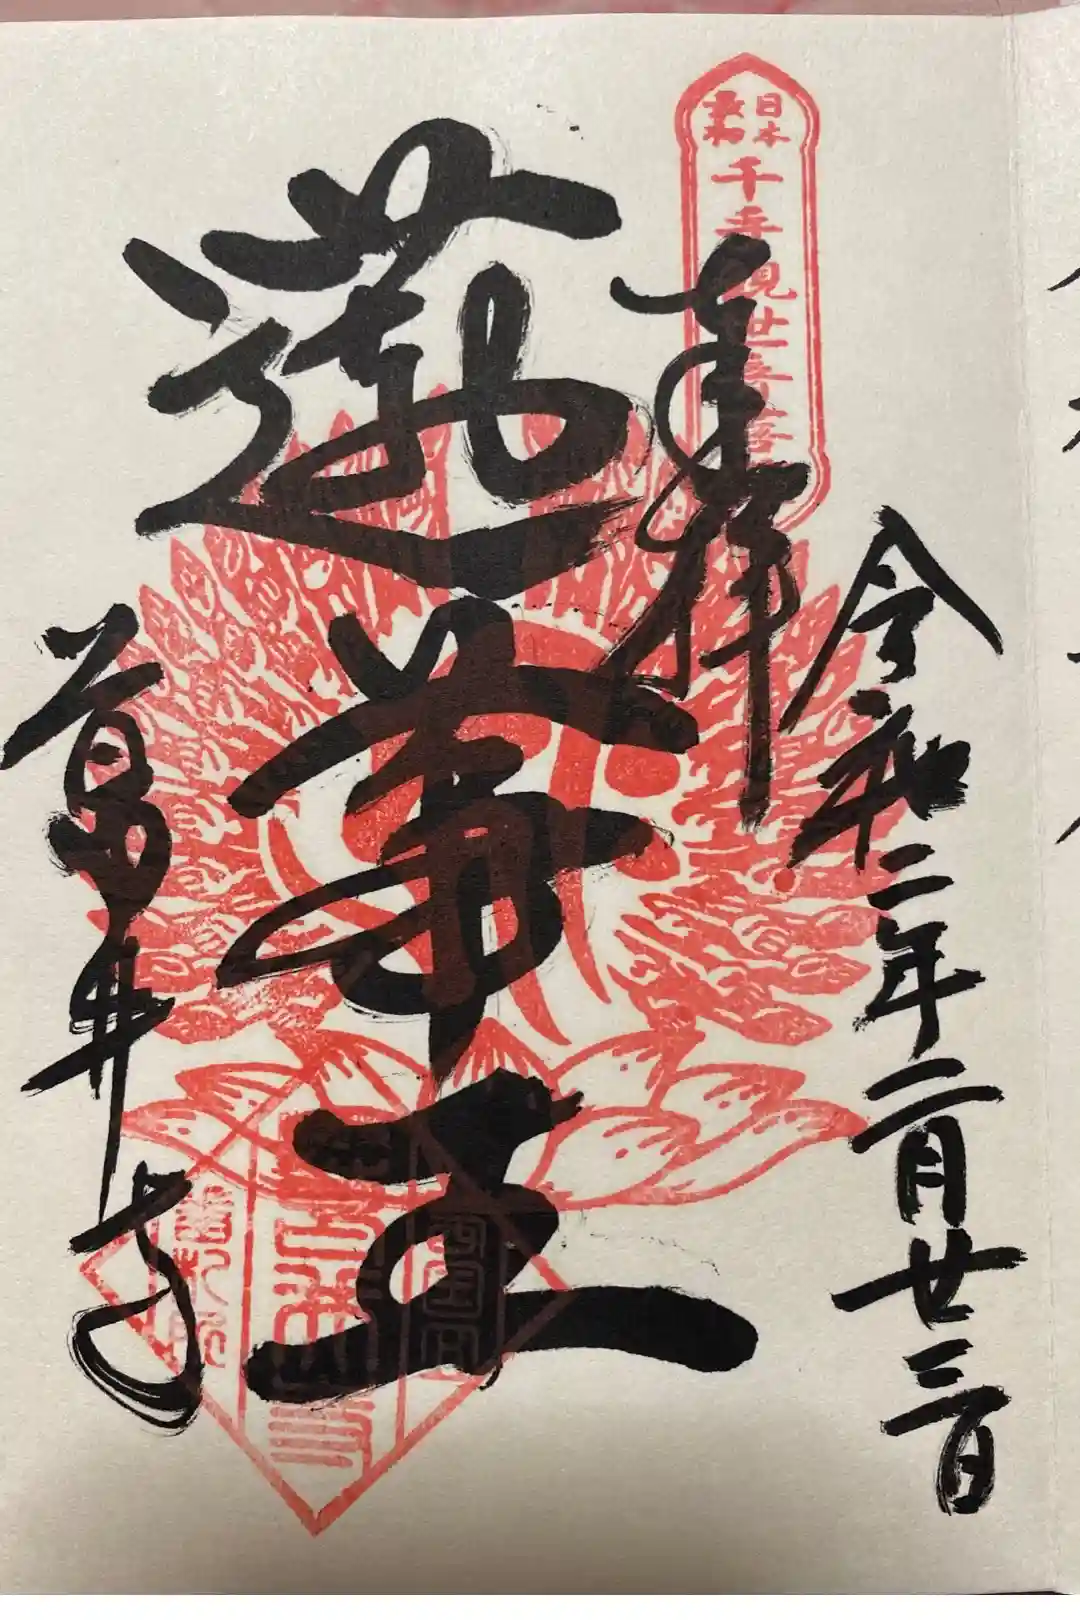 日本
最初
千手観世音菩
奉拝
令和二年二月廿三日
蓮華王
葛井寺